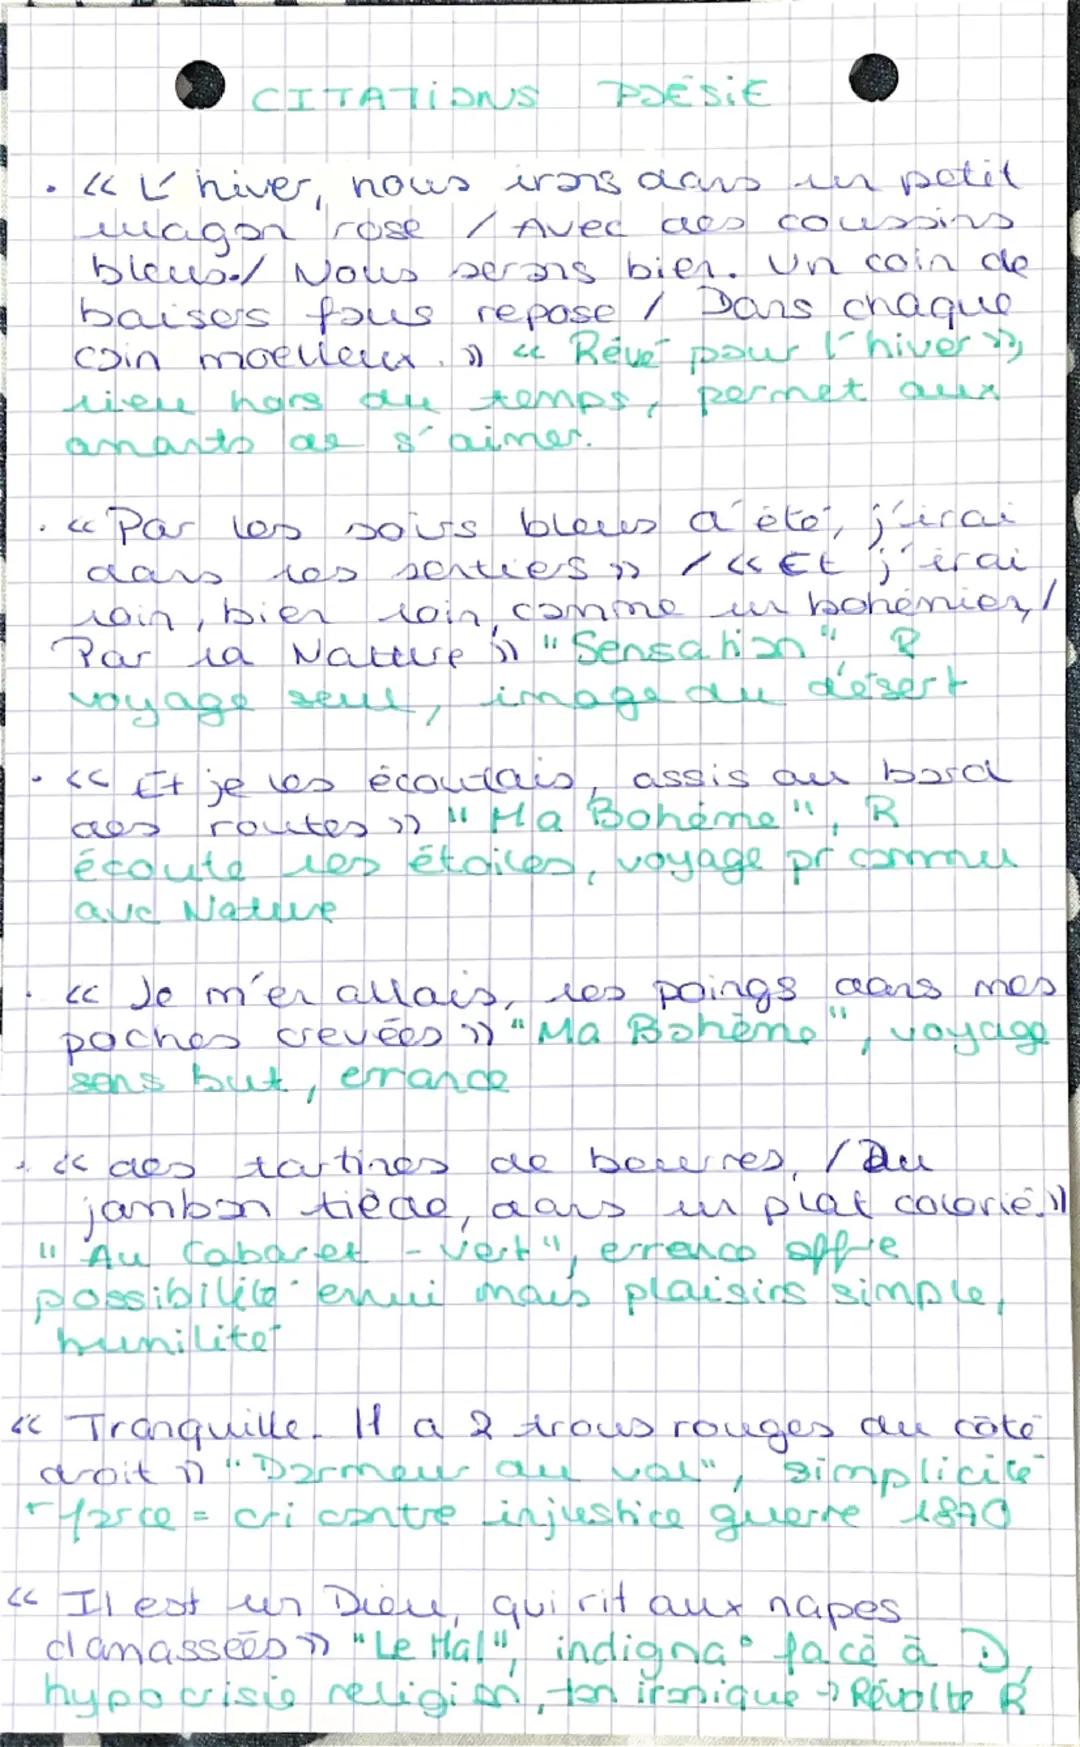 CITATIONS POÉSIE
. « L'hiver, nous irons dans un petit
wagon rose / Avec des coussins
bleus. / Nous serons bien. Un coin de
baisers fous repose / Dans chaque
coin moelleux. » « Rêvé pour l'hiver »,
lieu hors du temps, permet aux
amants de s'aimer.
. « Par les soirs bleus d'été, j'irai
dans les sentiers » / « Et j'irai
loin, bien loin, comme un bohémien, /
Par la Nature » "Sensation" R
voyage seul, image du désert
. « Et je les écoutais, assis au bord
des routes » "Ma Bohème", R
écoute les étoiles, voyage pr commu
avc Nature
. « Je m'en allais, les poings dans mes
poches crevées » "Ma Bohème", voyage
sans but, errance
. « des tartines de beurres, / Du
jambon tiède, dans un plat colorié. »
"Au Cabaret - Vert", errance offre
possibilité ennui mais plaisirs simple,
humilité
« Tranquille. Il a 2 trous rouges au côté
droit » "Dormeur du val", simplicité
+ force = cri contre injustice guerre 1870
« Il est un Dieu, qui rit aux napes
damassées » "Le Mal", indigna° face à D,
hypocrisie religion, ton ironique → Révolte R